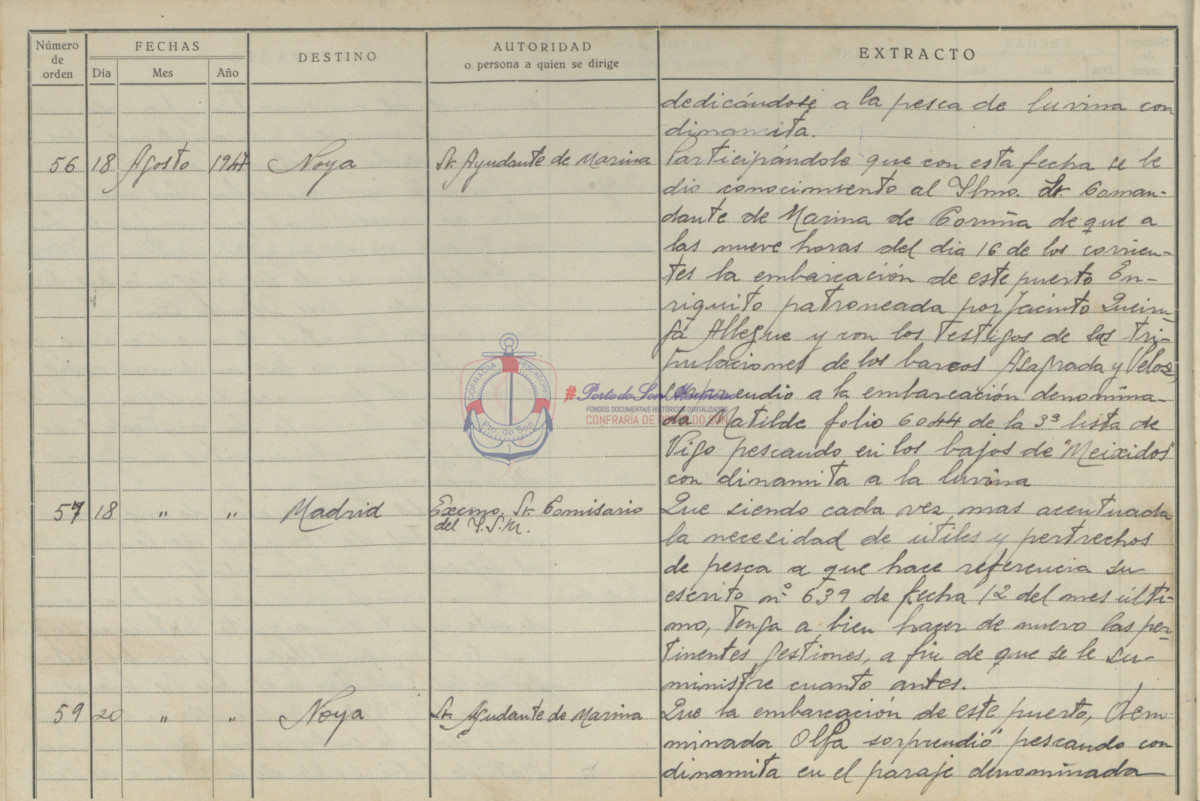 Número de orden
FECHAS
Día Mes Año
DESTINO
AUTORIDAD
o persona a quien se dirige
EXTRACTO
dedicándose a la pesca de luvina con
dinamita.
56 18 Agosto 1947 Noya Sr. Ayudante de Marina Participándole que con esta fecha se le
dio conocimiento al Ilmo. Sr. Coman-
dante de Marina de Coruña de que a
las nueve horas del dia 16 de los corrien-
tes la embarcación de este puerto En-
riquito patroneada por Jacinto Queiru-
ga Allegue y con los testigos de las tri-
pulaciones de los barcos Asagrada y Veloz,
a la embarcación denomina-
da Matilde folio 6044 de la 3ª lista de
Vigo pescando en los bajos de "Meixidos"
con dinamita a la luvina
57 18 " " Madrid Excmo. Sr. Comisario Que siendo cada vez mas acentuada
del I.S.M. la necesidad de útiles y pertrechos
de pesca a que hace referencia su
escrito nº 639 de fecha 12 del mes últi-
mo, tenga a bien hacer de nuevo las per-
tinentes gestiones, a fin de que se le su-
ministre cuanto antes.
59 20 " " Noya Sr. Ayudante de Marina Que la embarcación de este puerto,
minada Olfa sorprendió pescando con
dinamita en el paraje denominada
COFRADIA PESCADORES
Pto. do Son
#Porto do Son
FONDOS DOCUMENTAIS HISTÓRICOS DIGITALIZADOS
CONFRARIA DE PORTO DO SON